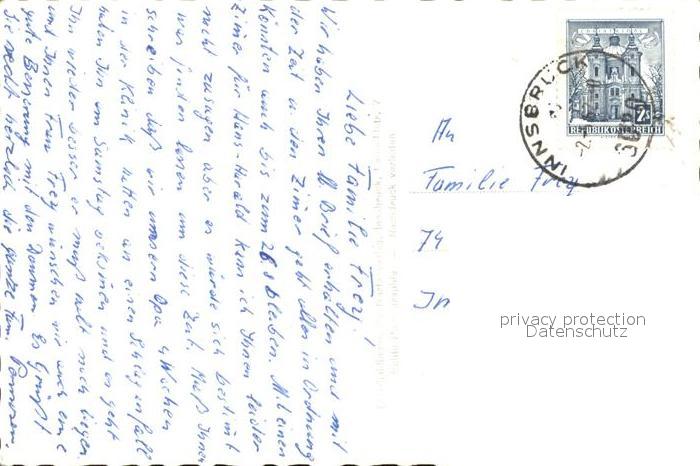 Liebe Familie Frey!
Wir haben Ihren lb. Brief erhalten und mit
der Zeit u. den Zimer geht alles in Ordnung
Könnten auch bis zum 26.8 bleiben. M. einen
Zimer für Hans-Harald kann ich Ihnen leider
nicht zusagen aber es würde sich bestimt
was finden lassen um diese Zeit. Muß Ihnen
schreiben daß wir unseren Opa 4 Wochen
in der Klinik hatten an einen Schlaganfall
haben Ihn am Samstag bekommen und es geht
Ihn wieder besser er muß halt noch liegen.
und Ihnen Frau Frey wünschen wir auch eine
gute Besserung mit den Daumen Es Grüßt
Sie recht herzlich die ganze Fam.
An
Familie Frey
74
In
INNSBRUCK
REPUBLIK ÖSTERREICH
privacy protection
Datenschutz